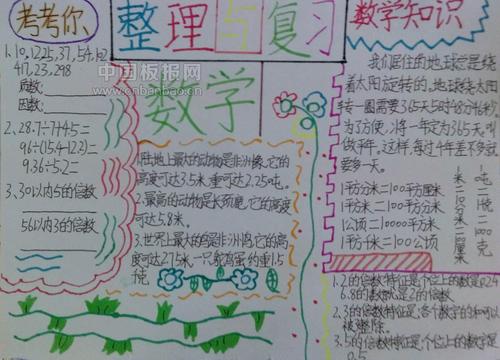 考考你
1、10,1225,37,54,42
417,23,298
质数:
因数:
2、28.7÷7+4.5=
96÷(15.4-12.2)=
9.36÷5.2=
3、30以内5的倍数
56以内3的倍数
整理与复习
数学
中国板报网
www.cnbanbao.cn
1.陆地上最大的动物是非洲象,它的
高度可达3.5米,重可达2.25吨。
2.最高的动物是长颈鹿,它的高度
可达5.8米。
3.世界上最大的鸟是非洲鸵,它的高
度可达2.75米一只鸵鸟蛋约重1.5
千克
数学知识
我们居住的地球总是绕
着太阳旋转的。地球绕太阳
转一圈需要365天5时48分46秒。
为了方便,将一年定为365天。叫
做平年,这样,每过4年差不多就
要多一天。
1平方分米=100平方厘米
1平方米=100平方分米
1公顷=10000平方米
1平方千米=100公顷
1米=100厘米
1吨=1000千克
1.2的倍数特征是:个位上的数是0.2.4
6.8的数都是2的倍数.
2.3的倍数特征是:各个数字的和可以
被整除.
3.5的倍数特征是:个位上的数字是
0.5